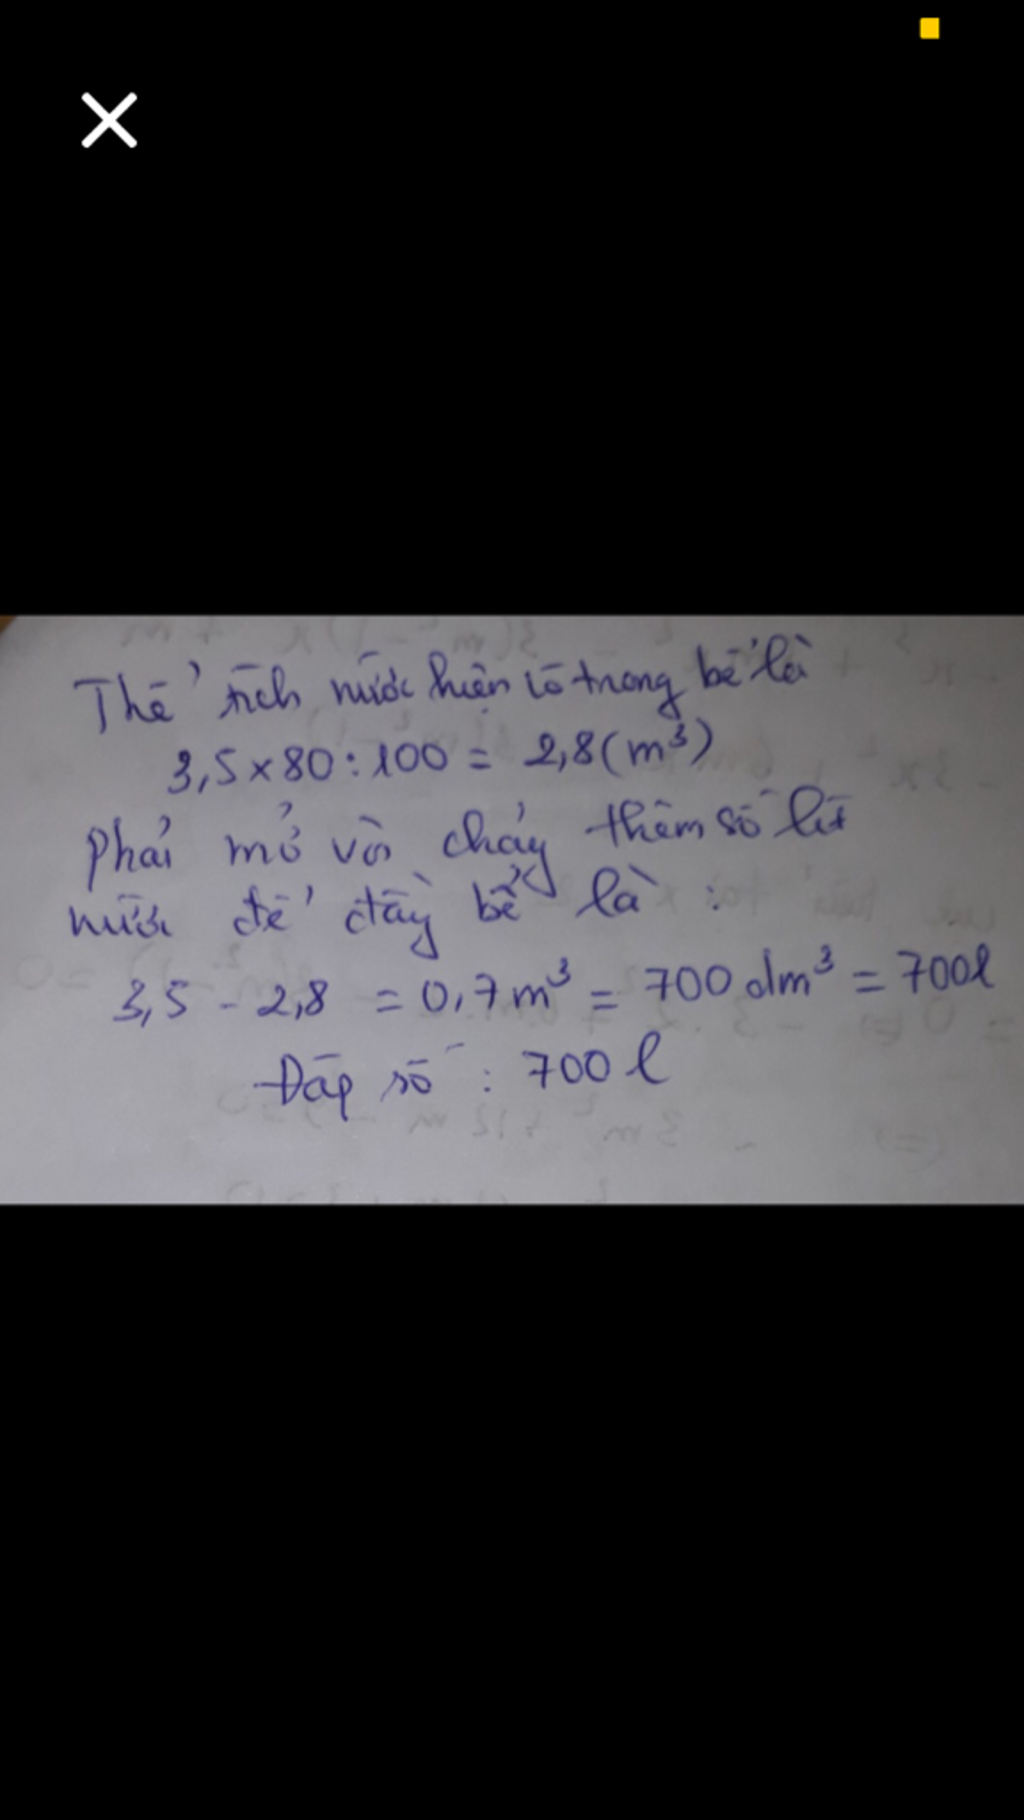 Thể tích nước hiện có trong bể là
3,5 x 80 : 100 = 2,8 (m³)
Phải mở vòi chảy thêm số lít
nước để đầy bể là :
3,5 - 2,8 = 0,7 m³ = 700 dm³ = 700l
Đáp số : 700 l